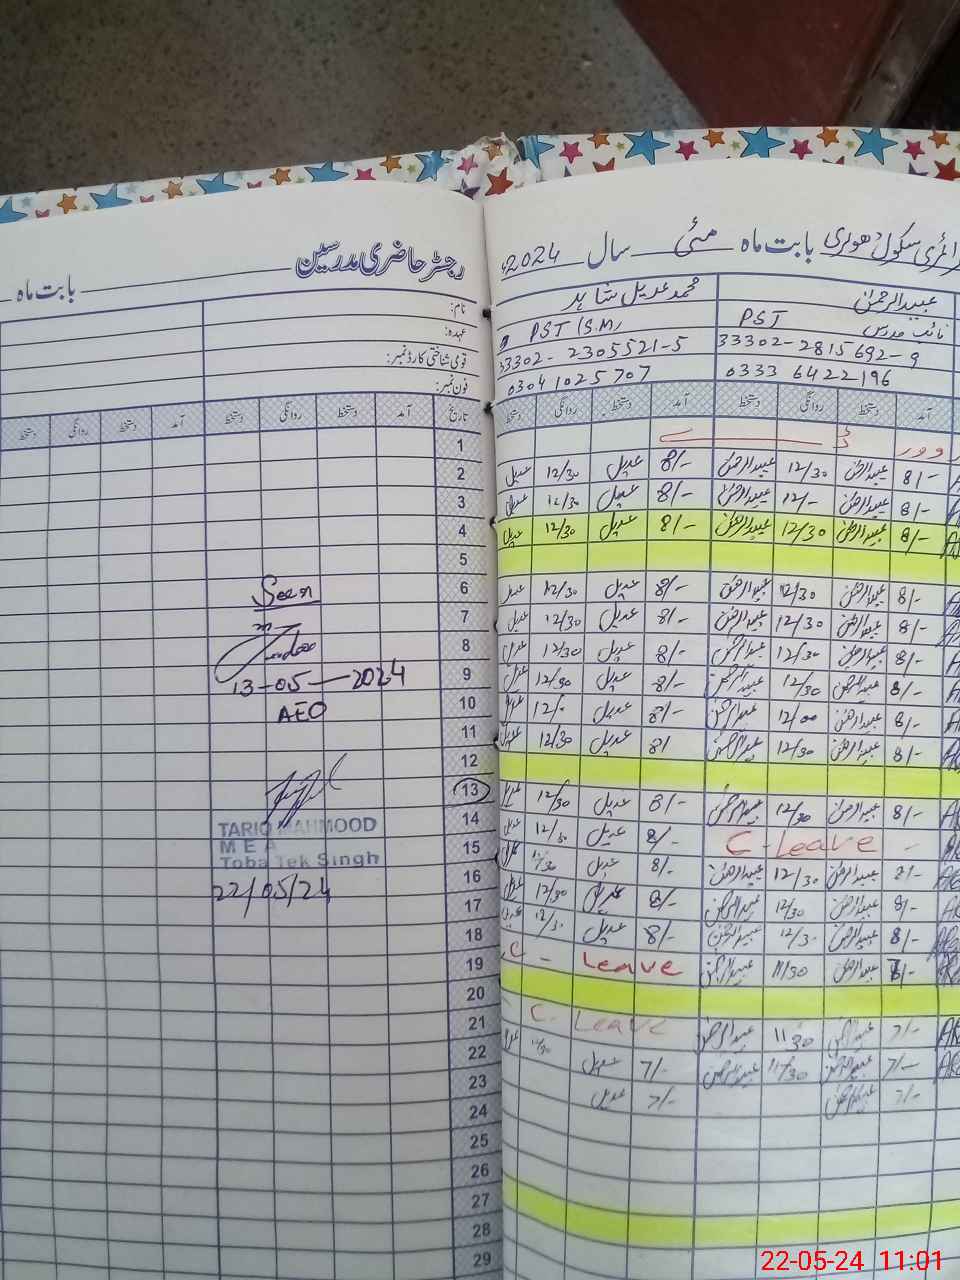 رجسٹر حاضری مدرسین بابت ماہ
نام:
عہدہ:
قومی شناختی کارڈ نمبر:
فون نمبر:
تاریخ آمد دستخط روانگی دستخط آمد دستخط روانگی دستخط
1
2
3
4
5
6
7
8
9
10
11
12
13
14
15
16
17
18
19
20
21
22
23
24
25
26
27
28
29
Seen
13-05-2024
AEO
TARIQ MAHMOOD
M E A
Toba Tek Singh
22/05/24
سکول بابت ماہ مئی سال 2024ء
عبیدالرحمٰن محمد عدیل شاہد
نائب مدرس PST PST (S.M)
33302-2815692-9 33302-2305521-5
0333 6422196 03041025707
آمد دستخط روانگی دستخط آمد دستخط روانگی دستخط
8/- عبیدالرحمٰن 12/30 عبیدالرحمٰن 8/- عدیل 12/30 عدیل
8/- عبیدالرحمٰن 12/- عبیدالرحمٰن 8/- عدیل 12/30 عدیل
8/- عبیدالرحمٰن 12/30 عبیدالرحمٰن 8/- عدیل 12/30 عدیل
8/- عبیدالرحمٰن 12/30 عبیدالرحمٰن 8/- عدیل 12/30 عدیل
8/- عبیدالرحمٰن 12/30 عبیدالرحمٰن 8/- عدیل 12/30 عدیل
8/- عبیدالرحمٰن 12/30 عبیدالرحمٰن 8/- عدیل 12/30 عدیل
8/- عبیدالرحمٰن 12/30 عبیدالرحمٰن 8/- عدیل 12/30 عدیل
8/- عبیدالرحمٰن 12/00 عبیدالرحمٰن 8/- عدیل عدیل
8/- عبیدالرحمٰن 12/30 عبیدالرحمٰن 8/ عدیل 12/30 عدیل
8/- عبیدالرحمٰن 12/30 عبیدالرحمٰن 8/- عدیل 12/30 عدیل
C-Leave 8/- عدیل 12/30 عدیل
8/- عبیدالرحمٰن 12/30 عبیدالرحمٰن 8/- عدیل عدیل
8/- عبیدالرحمٰن 12/30 عبیدالرحمٰن 8/- عدیل 12/30 عدیل
8/- عبیدالرحمٰن 12/30 عبیدالرحمٰن 8/- عدیل 12/30 عدیل
7/- عبیدالرحمٰن 11/30 عبیدالرحمٰن C - Leave
7/- عبیدالرحمٰن 11/30 عبیدالرحمٰن C. Leave
7/- عبیدالرحمٰن 11/30 عبیدالرحمٰن 7/- عدیل عدیل
7/- عبیدالرحمٰن 7/- عدیل
22-05-24 11:01